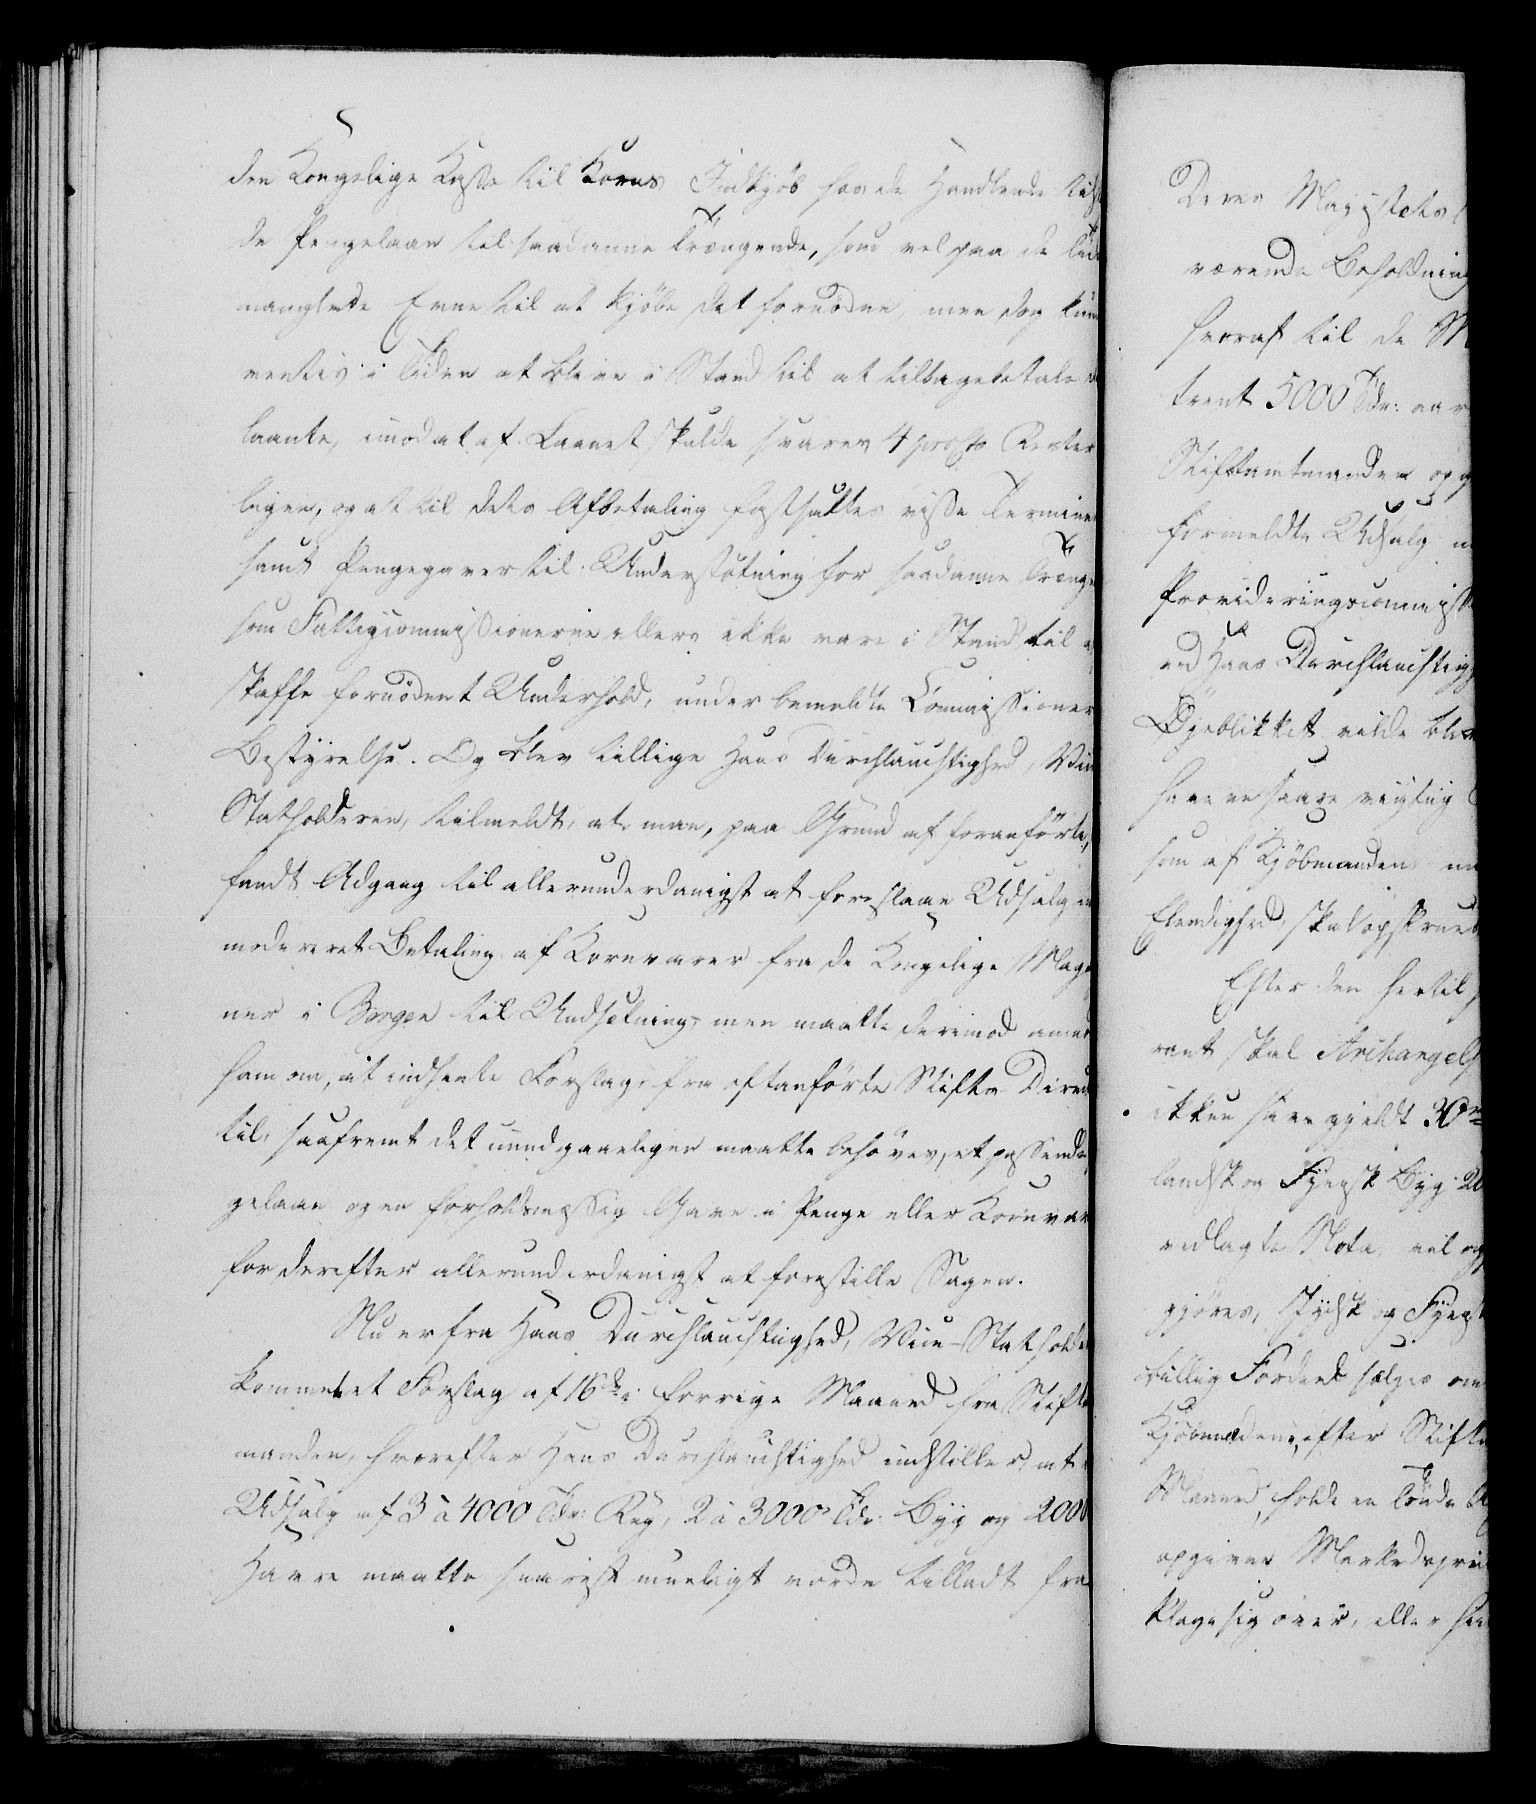 den Kongelige Kasse til Korns Indkjöb hos de Handlende
de Pengelaan til saadanne Trængende, som vel paa de
manglede Evne til at kjöbe det fornödne, men dog
ventes i Tiden at blive i Stand til at tilbagebetale
laante, imod at af Laanet skulde svares 4 procto Renter
ligen, og at til dets Afbetaling fastsattes visse Termine
samt Pengegaver til Understøtning for saadanne Trænge
som Fattigcommissionerne ellers ikke vare i Stand til
skaffe fornödent Underhold, under bemeldte Commissioner
Bestyrelse. Og blev tillige Hans Durchlauchtighed, Vice
Statholderen, tilmeldt, at man, paa Grund af foranförte,
fandt Adgang til allerunderdanigst at foreslaae Udsalg
modereret Betaling af Kornvarer fra de Kongelige Maga
ner i Bergen til Undsætning, men maatte derimod anmo
ham om, at indhente Forslag fra oftanförte Stifts Direc
til, saafremt det uundgaaeligen maatte behöves, et passende
gelaan og en forholdsmæssig Gave i Penge eller Kornvar
for derefter allerunderdanigst at forestille Sagen.
Nu er fra Hans Durchlauchtighed, Vice-Statholde
kommet et Forslag af 16de i forrige Maaned fra Stift
manden, hvorefter Hans Durchlauchtighed indstiller, at
Udsalg af 3 à 4000 Tdr: Rug, 2 à 3000 Tdr: Byg og 2000
Havre maatte snarest mueligt vorde tilladt fra
Deres Majestæts
værende Beholdning
hvoraf til de
trent 5000 Tdr: aar
Stiftamtmanden
formeldte Udsalg
Provideringscommiss
ved Hans Durchlauchtig
Öyeblikket vilde blev
have en saare vigtig
som af Kjöbmanden
Elendighed, skal opskrues
Efter den hertil
rant skal Archangelsk
ikkun have gjeldt
landsk og Fyensk Byg
vedlagte Nota, vil
gjöres, Jydsk og Fyensk
billig Fordeel sælges
Kjöbmændene, efter Stift
Maaned, holdt en Tönde
opgiven Markedspriis
klage sig over, eller